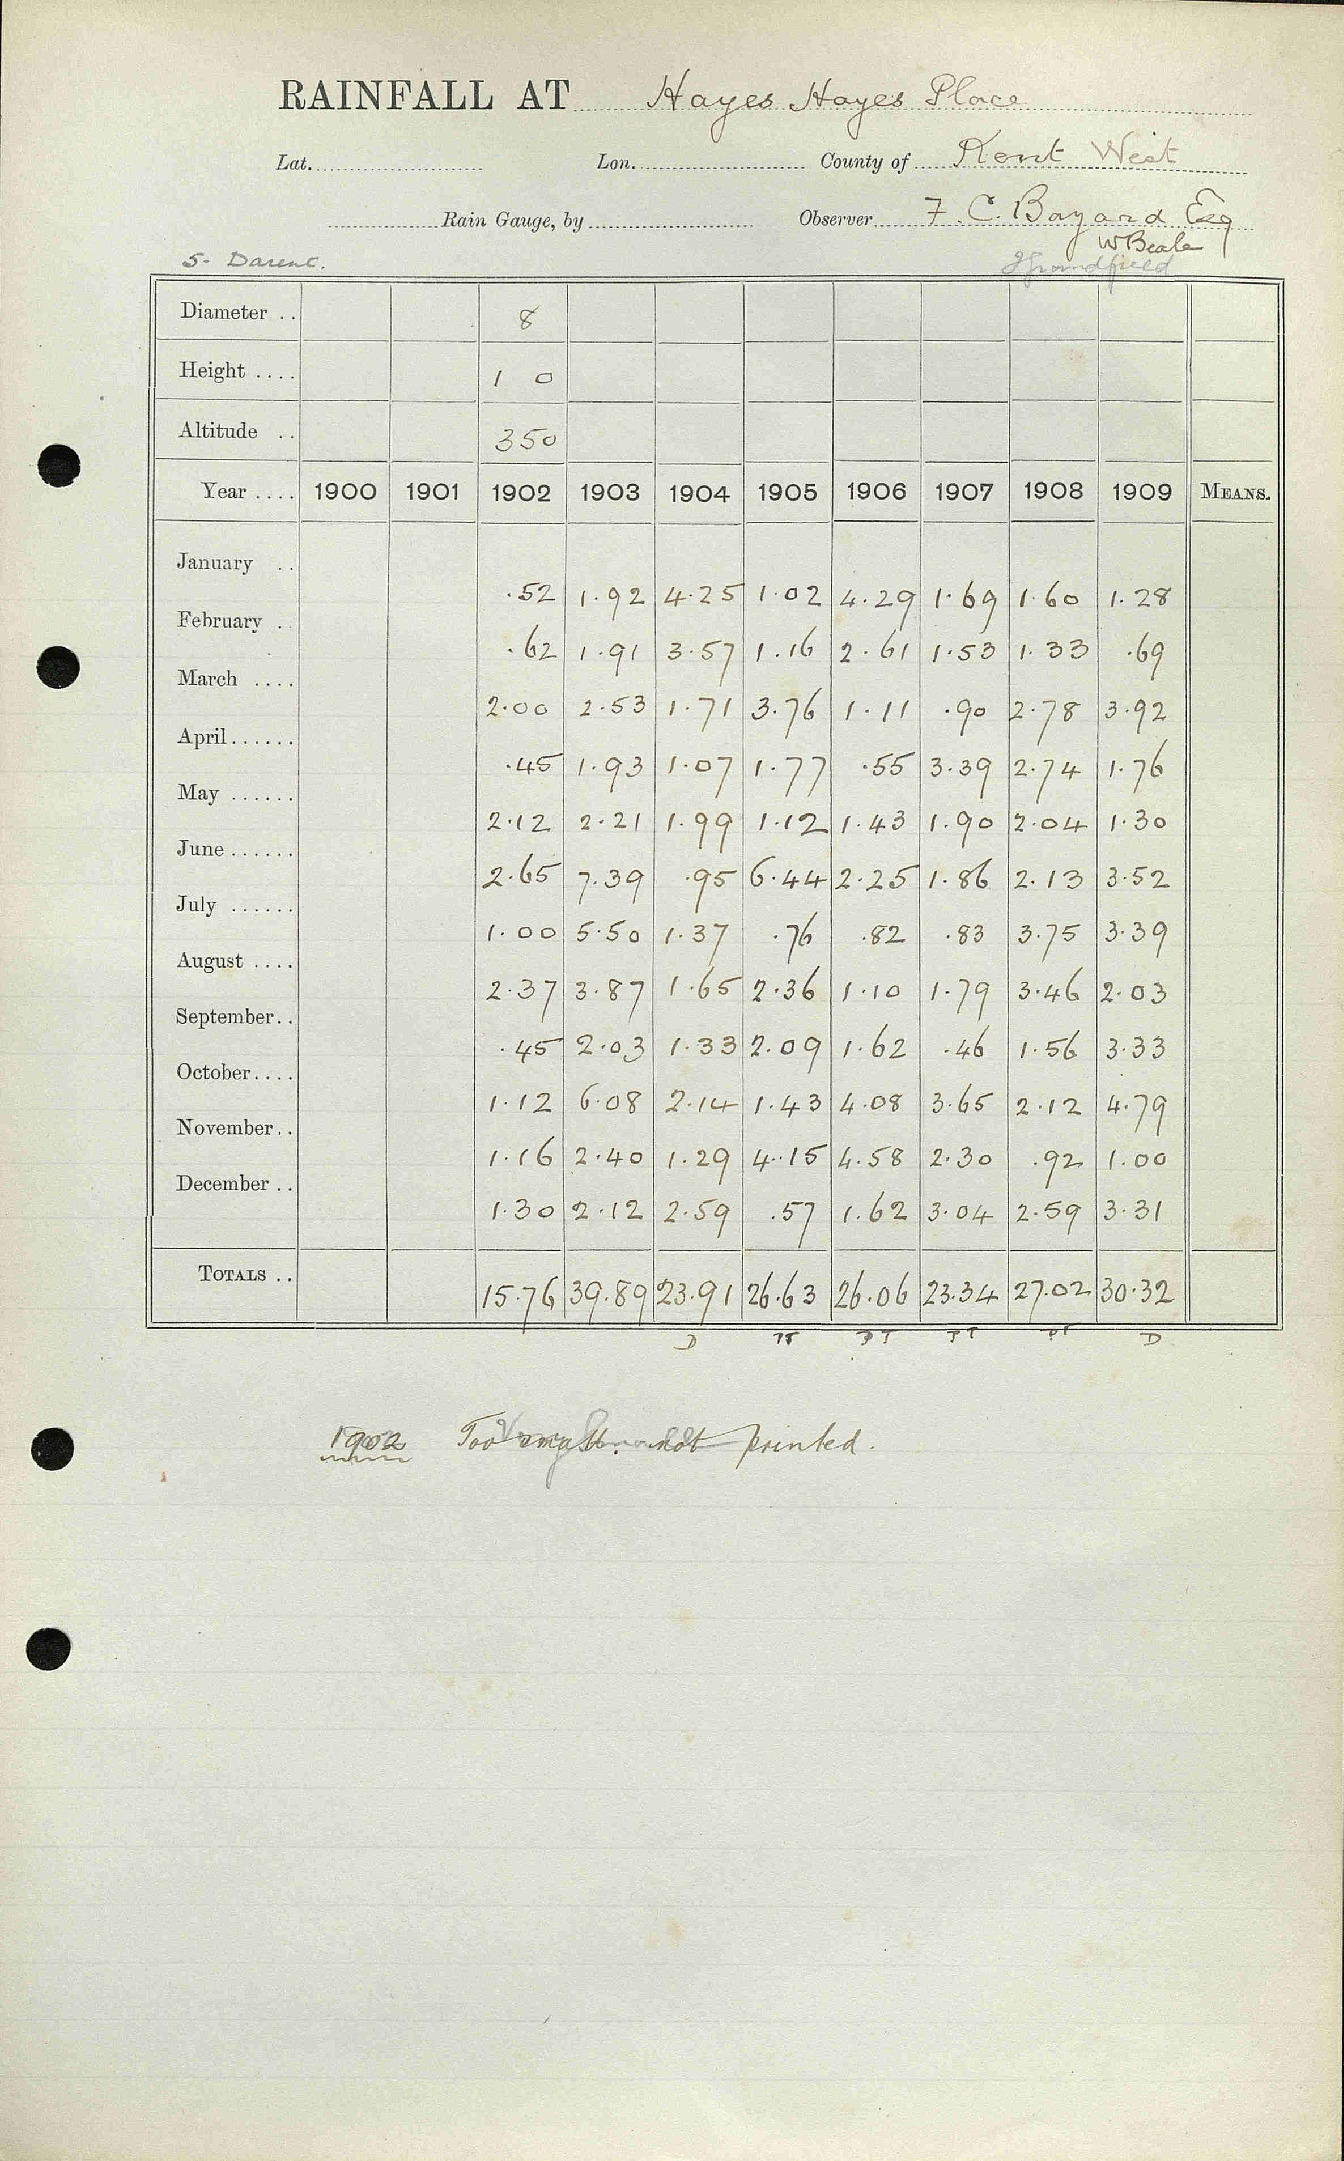 RAINFALL AT Hayes Hayes Place
Lat. Lon. County of Kent West
Rain Gauge, by Observer F. C. Bayard Esq
W Beale
5- Darent.
Diameter .. 8
Height .... 1 0
Altitude .. 350
Year .... 1900 1901 1902 1903 1904 1905 1906 1907 1908 1909 MEANS.
January .. .52 1.92 4.25 1.02 4.29 1.69 1.60 1.28
February .. .62 1.91 3.57 1.16 2.61 1.53 1.33 .69
March .... 2.00 2.53 1.71 3.76 1.11 .90 2.78 3.92
April...... .45 1.93 1.07 1.77 .55 3.39 2.74 1.76
May ...... 2.12 2.21 1.99 1.12 1.43 1.90 2.04 1.30
June...... 2.65 7.39 .95 6.44 2.25 1.86 2.13 3.52
July ...... 1.00 5.50 1.37 .76 .82 .83 3.75 3.39
August .... 2.37 3.87 1.65 2.36 1.10 1.79 3.46 2.03
September.. .45 2.03 1.33 2.09 1.62 .46 1.56 3.33
October.... 1.12 6.08 2.14 1.43 4.08 3.65 2.12 4.79
November.. 1.16 2.40 1.29 4.15 4.58 2.30 .92 1.00
December .. 1.30 2.12 2.59 .57 1.62 3.04 2.59 3.31
TOTALS .. 15.76 39.89 23.91 26.63 26.06 23.34 27.02 30.32
D D
1902 Too small. not printed.